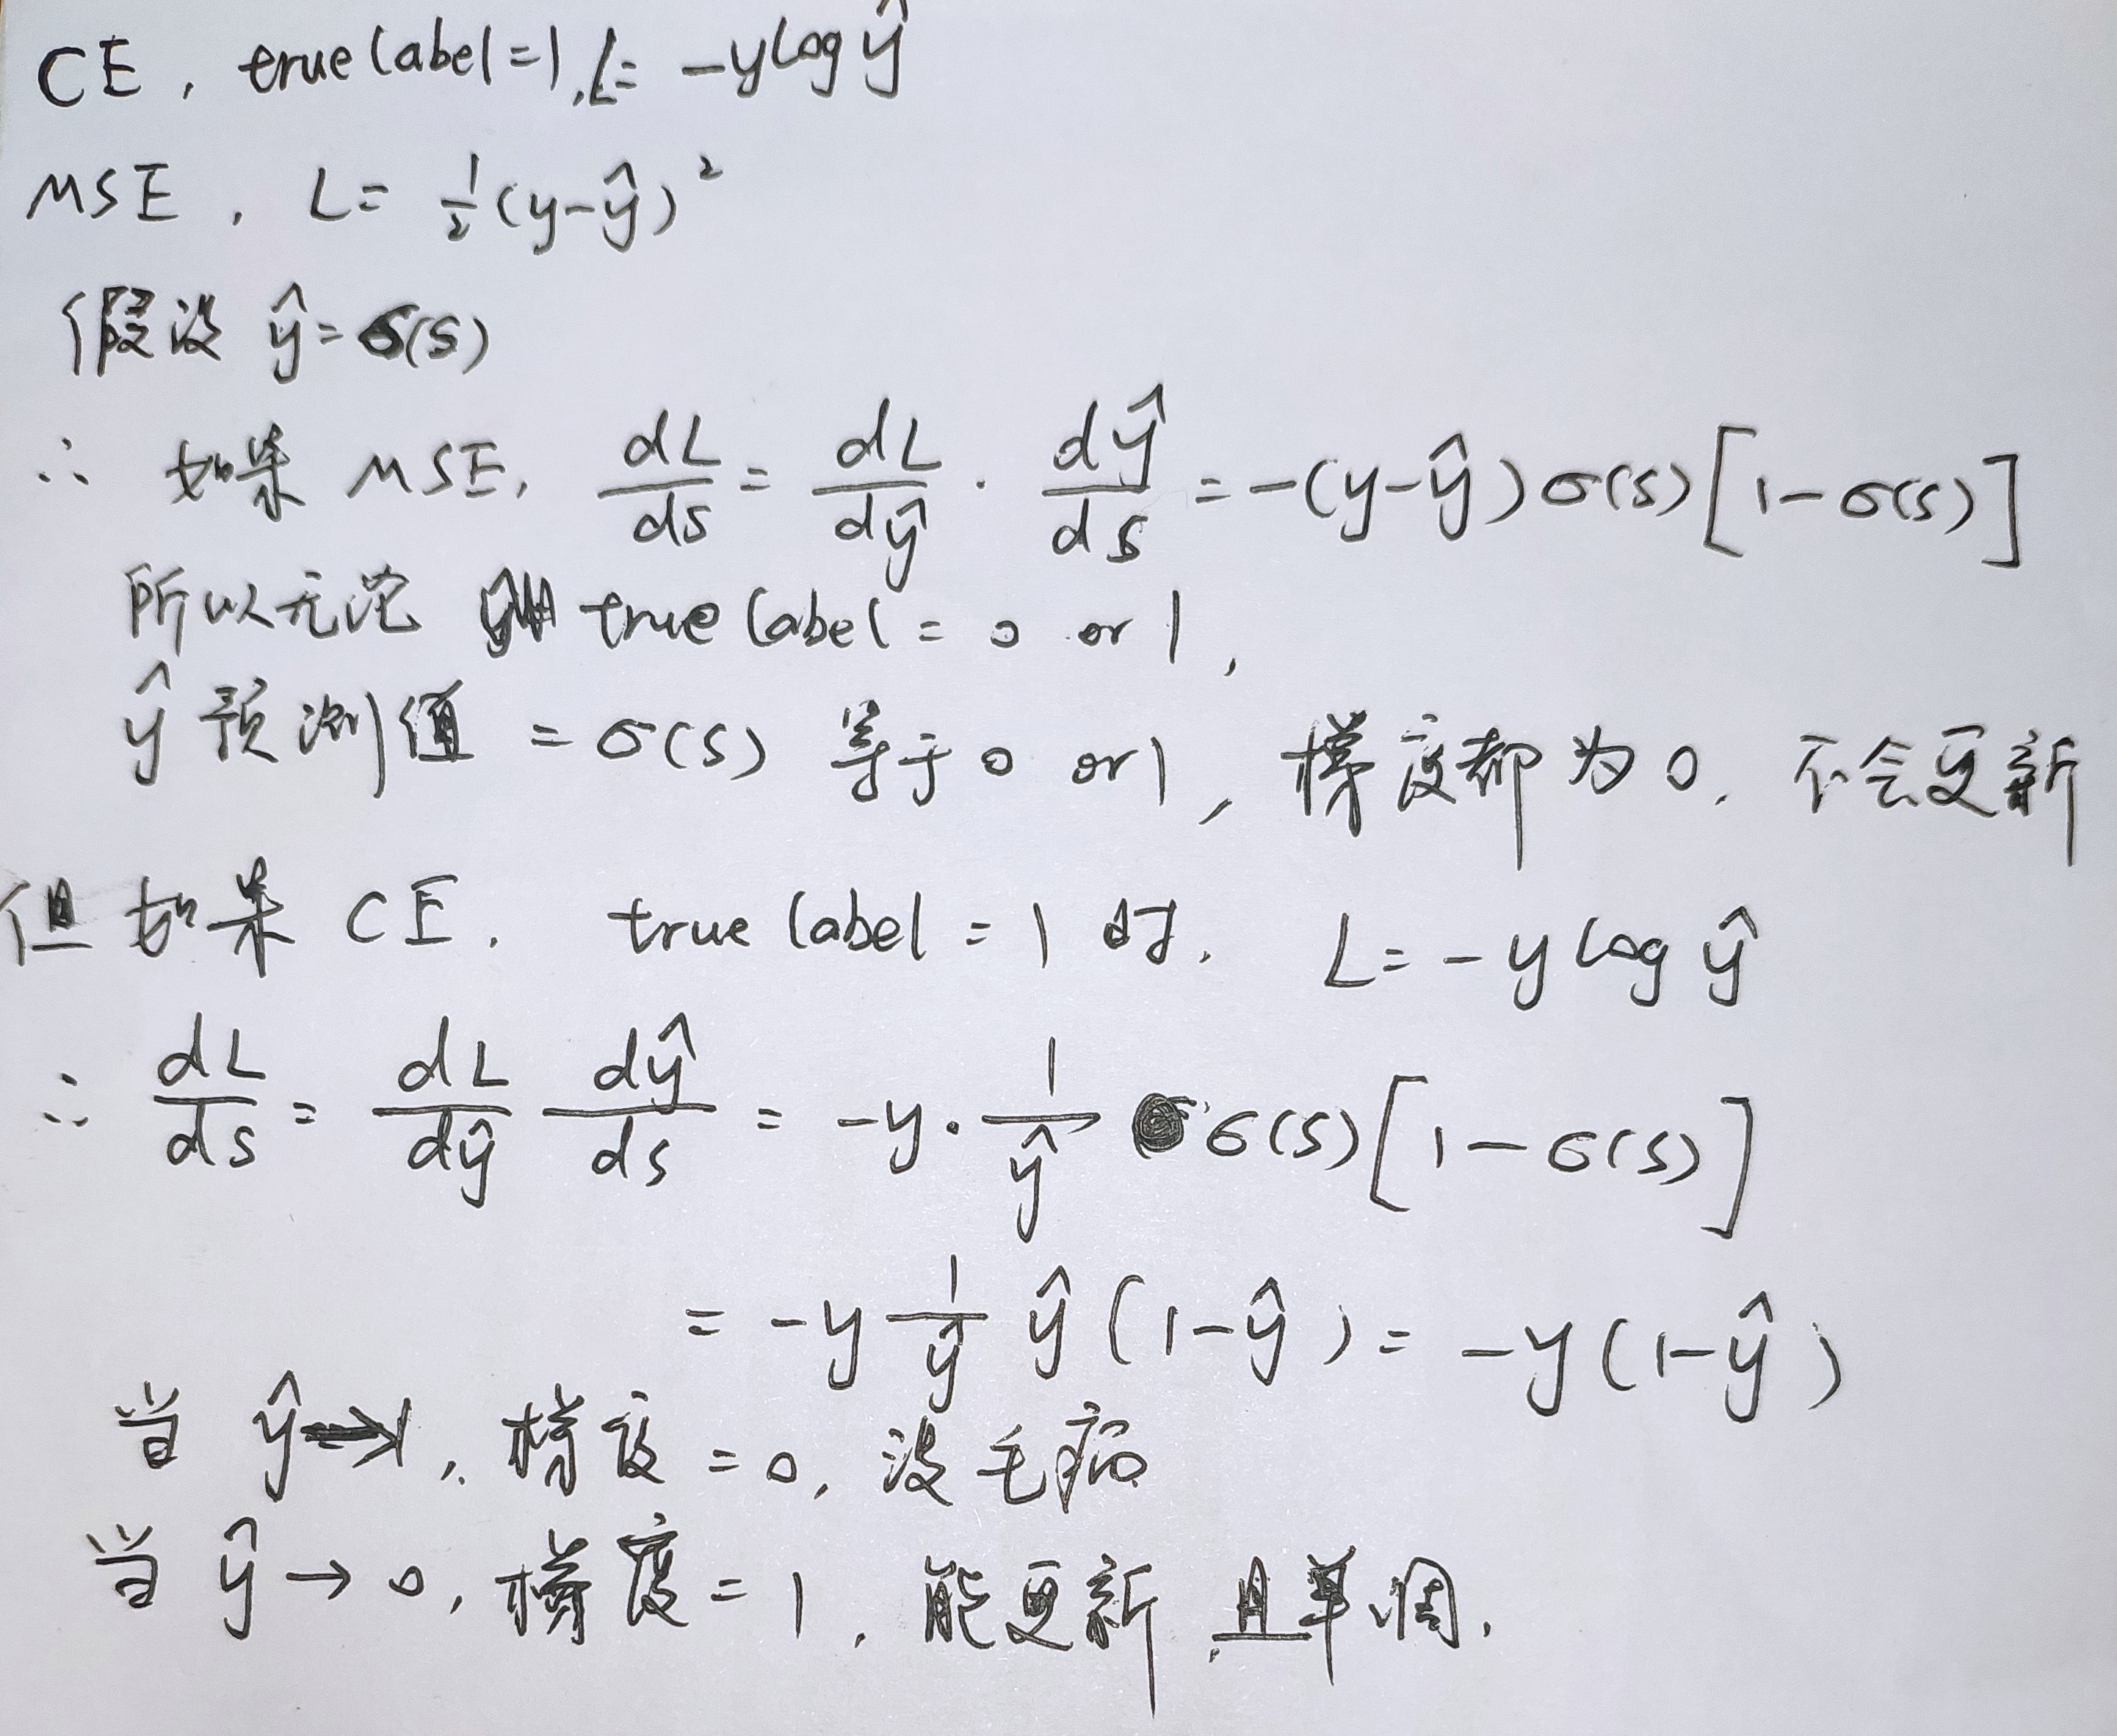 CE, true label=1, L= -ylogŷ
MSE, L= ½(y-ŷ)²
假设 ŷ=σ(s)
∴ 如果 MSE, dL/ds = dL/dŷ · dŷ/ds = -(y-ŷ)σ(s)[1-σ(s)]
所以无论 true label = 0 or 1,
ŷ预测值 = σ(s) 等于 0 or 1, 梯度都为0. 不会更新
但如果 CE. true label = 1 时. L= -y log ŷ
∴ dL/ds = dL/dŷ dŷ/ds = -y· 1/ŷ σ(s)[1-σ(s)]
= -y 1/ŷ ŷ(1-ŷ) = -y(1-ŷ)
当 ŷ→1, 梯度=0, 没毛病
当 ŷ→0, 梯度=1, 能更新, 且单调.